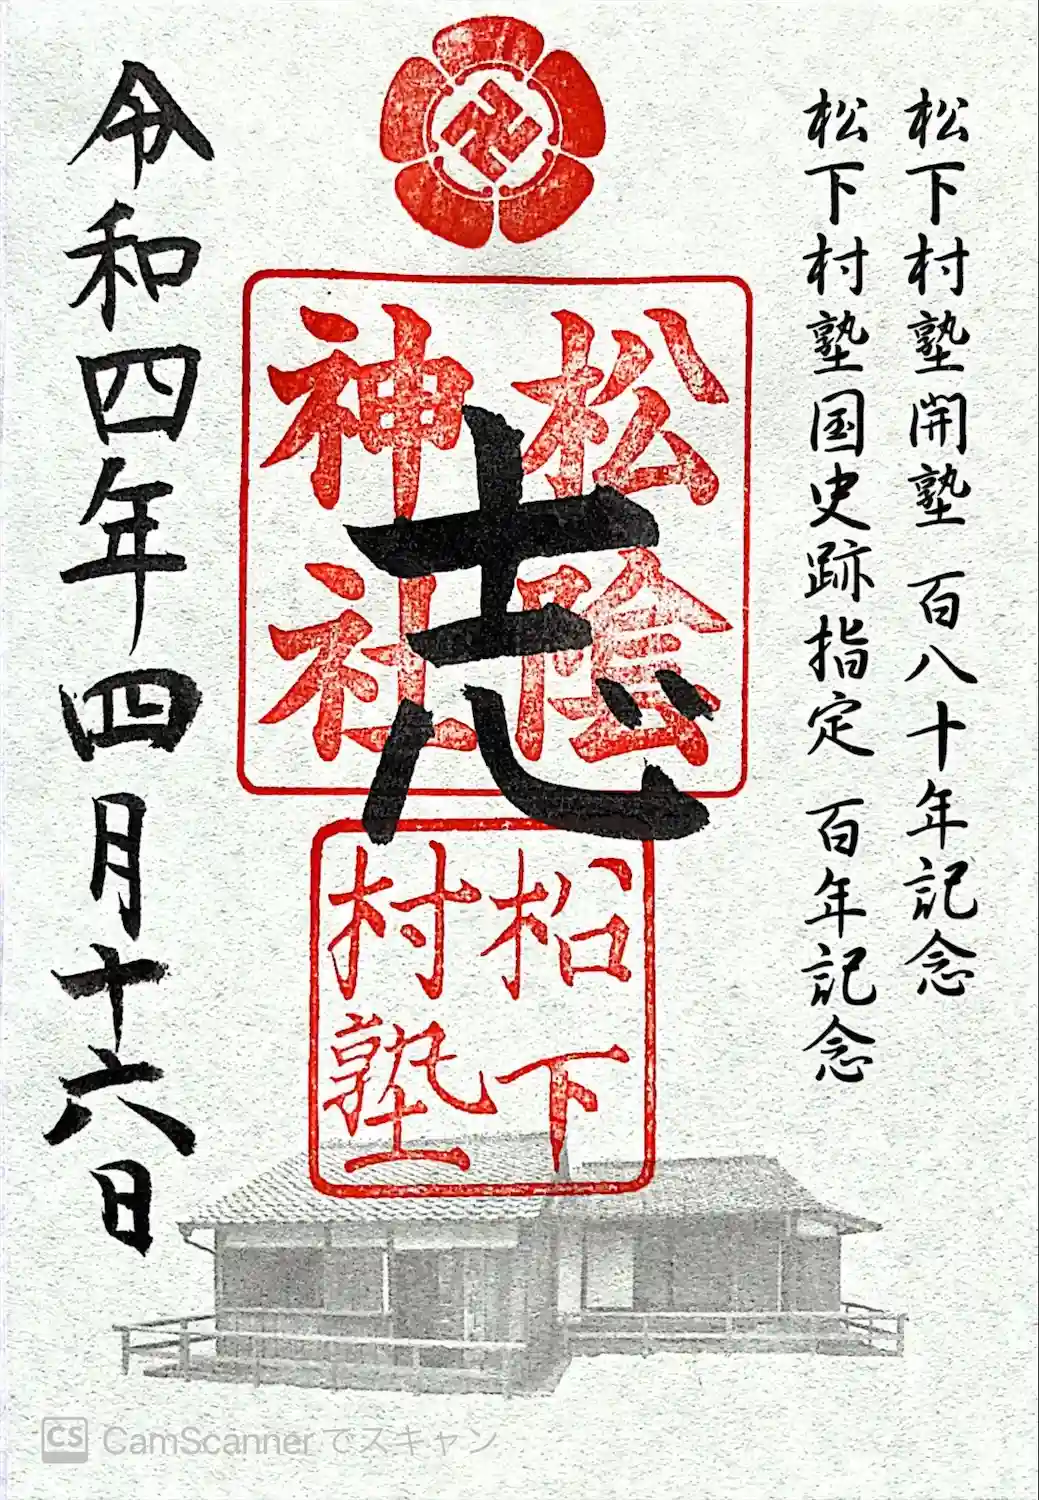 松下村塾開塾 百八十年記念
松下村塾国史跡指定 百年記念
松陰
神社
志
松下
村塾
令和四年四月十六日
CS CamScannerでスキャン